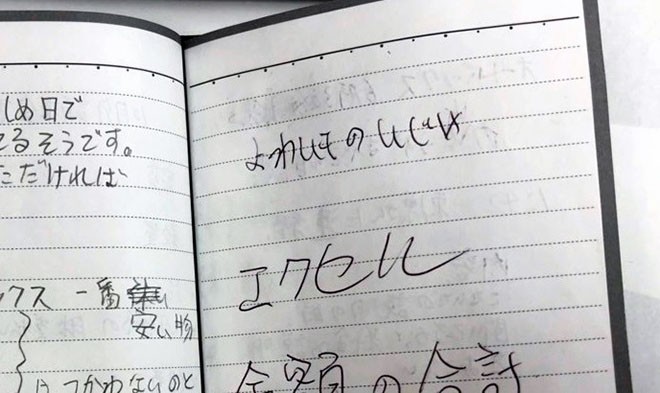 しめ日で
てるそうです。
ただければ
ックス 一番
安い物
は つかわないのと
よわいものいじめ
エクセル
金額の合計